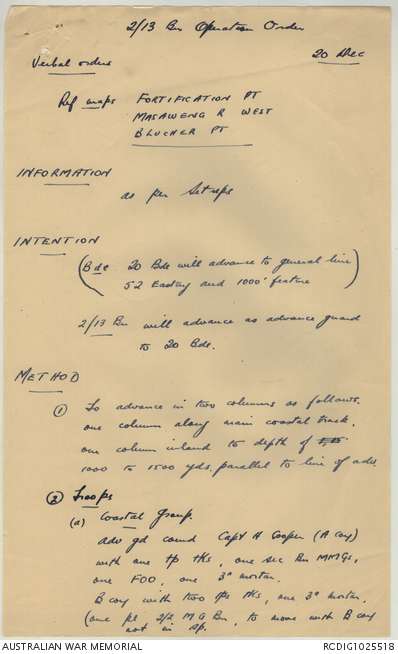 2/13 Bn Operation Order
20 Dec
Verbal orders
Ref maps FORTIFICATION PT
MASAWENG R WEST
BLUCHER PT
INFORMATION
as per Sitreps
INTENTION
(Bde 20 Bde will advance to general line
52 Easting and 1000' feature)
2/13 Bn will advance as advance guard
to 20 Bde.
METHOD
① To advance in two columns as follows.
one column along main coastal track.
one column inland to depth of
1000 to 1500 yds. parallel to line of adv.
② Troops
(a) Coastal Group.
Adv gd comd Capt H Cooper (A coy)
with one tp tks, one sec Bn MMGs,
one FOO, one 3" mortar.
B coy with two tps tks, one 3" mortar.
(one pl 2/2 M G Bn, to move with B coy
not in sp.
AUSTRALIAN WAR MEMORIAL
RCDIG1025518